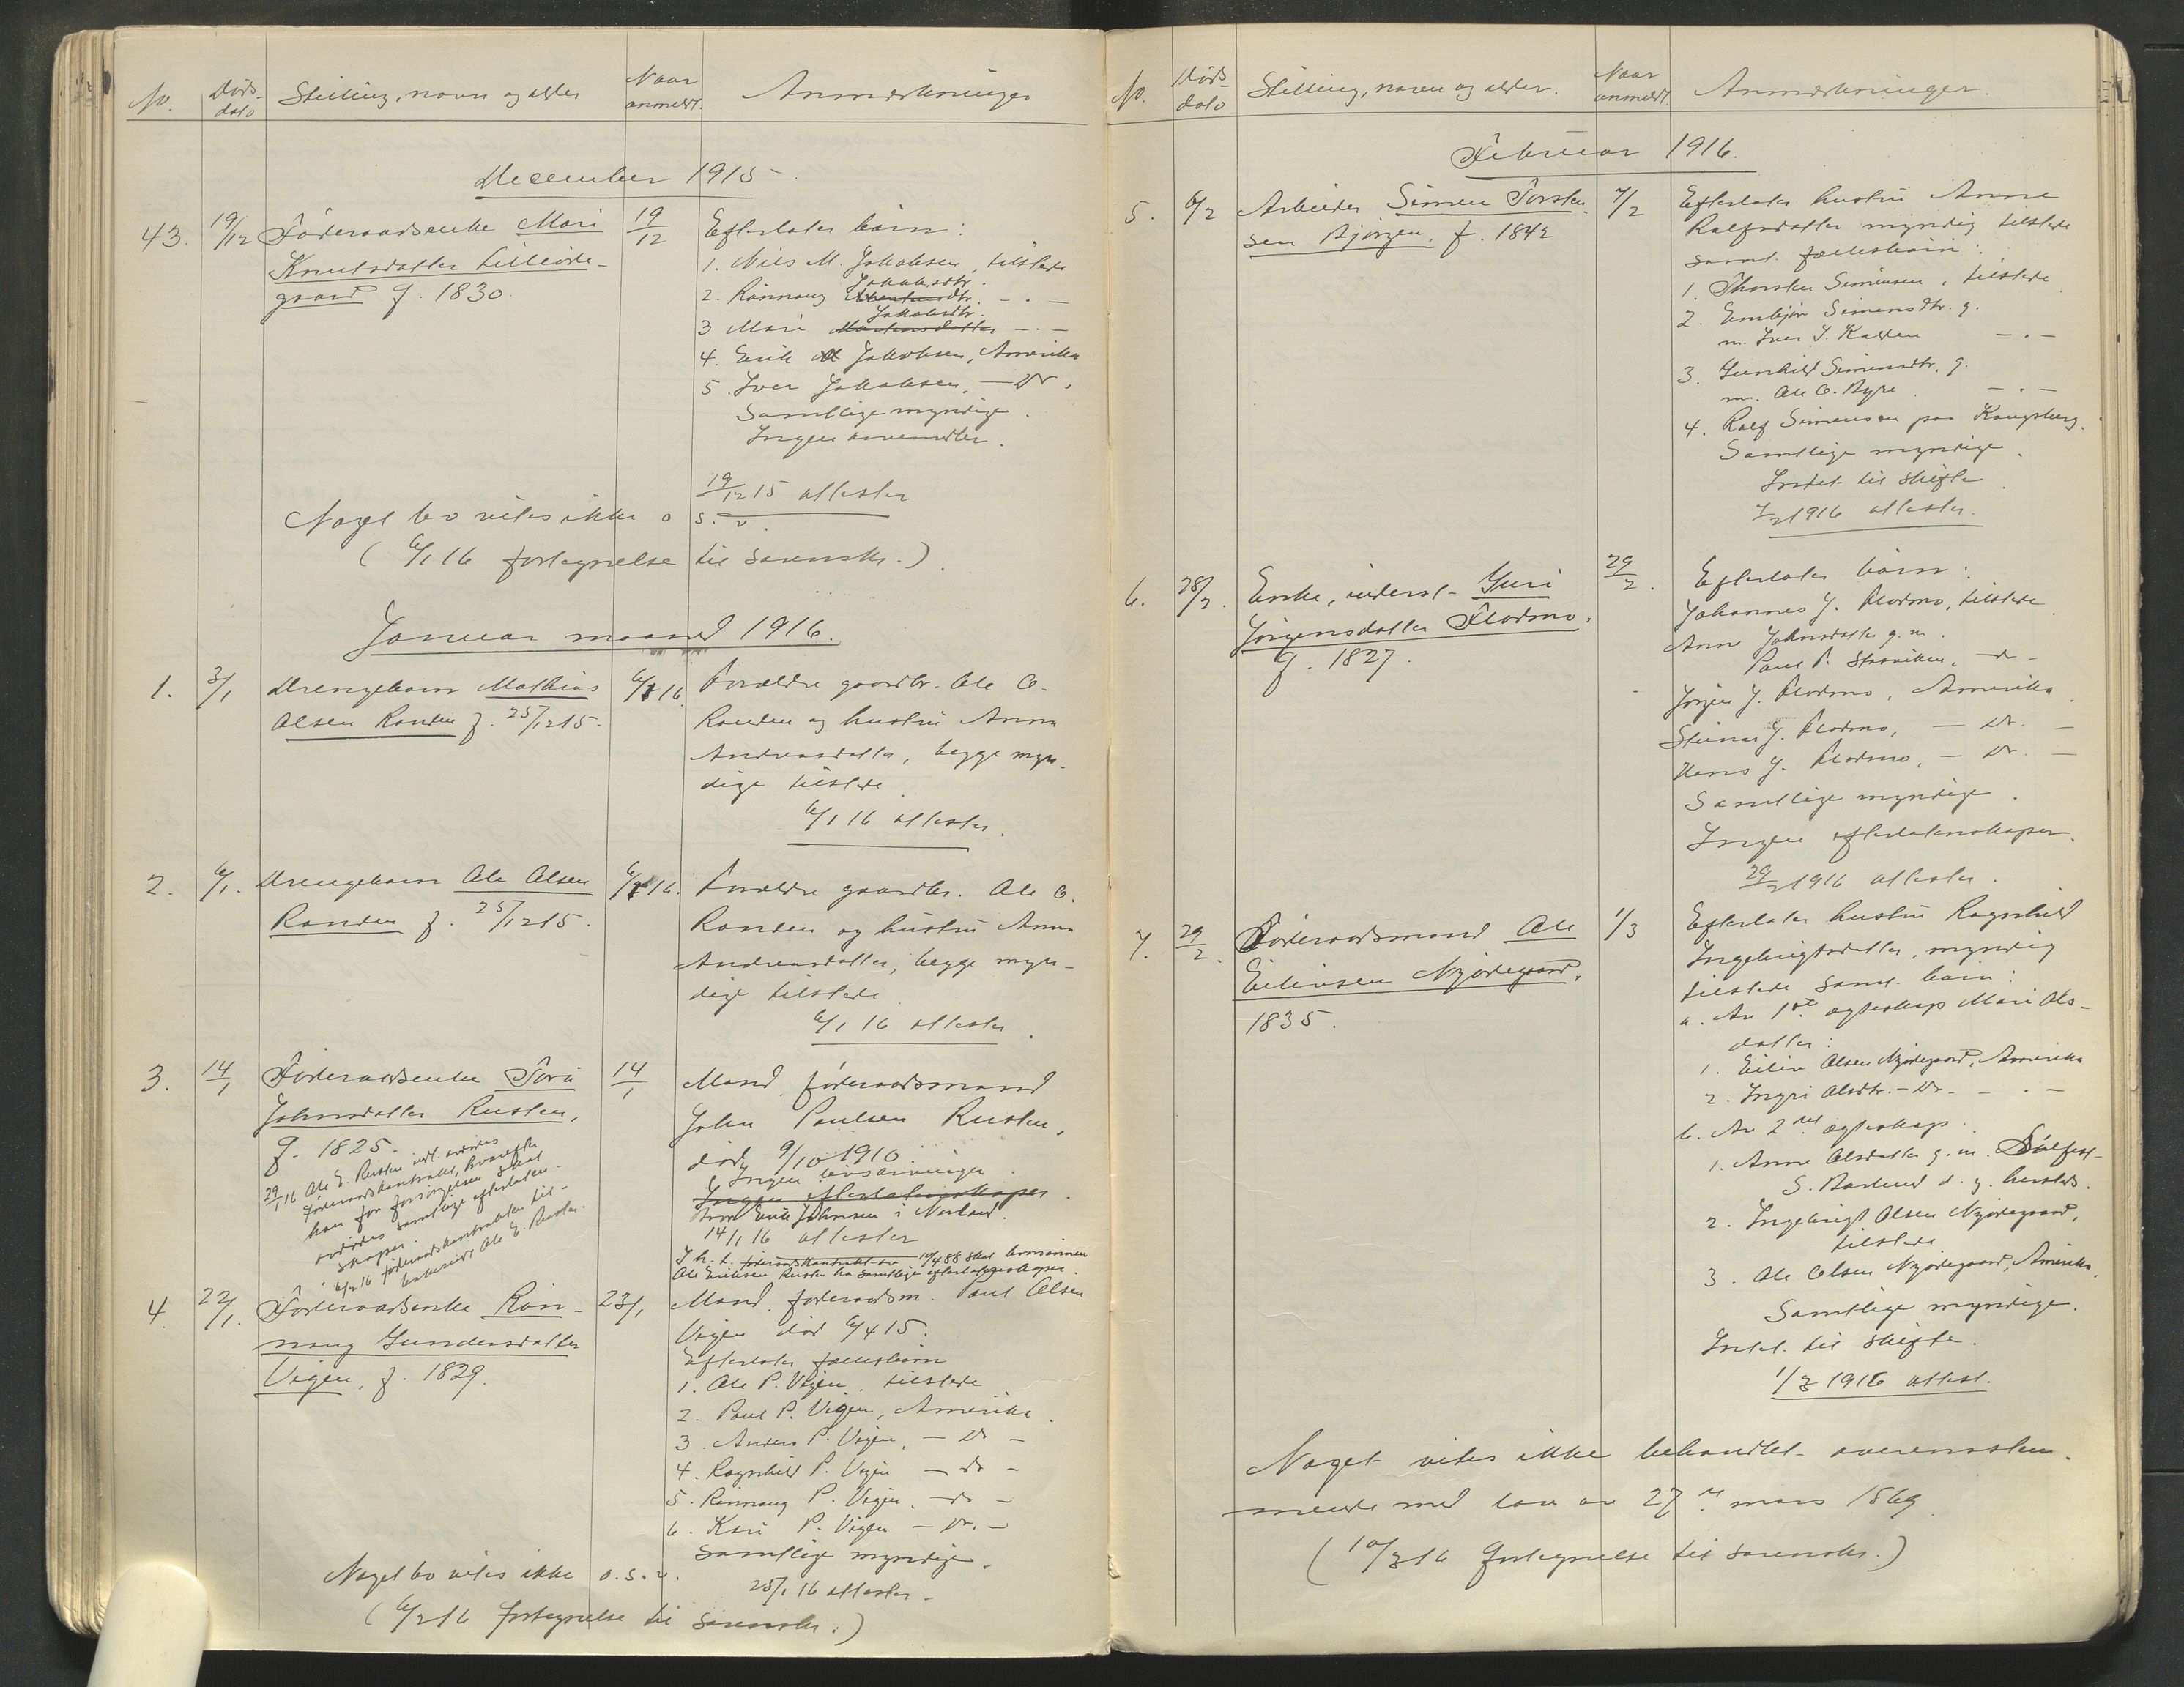 No.
Døds-
dato
Stilling, navn og alder
Naar
anmeldt.
Anmerkninger
December 1915
43.
19/12
Føderaadsenke Mari
Knutsdatter Lilleøde-
gaard f. 1830.
19/12
Efterlater barn:
1. Nils M. Jakobsen, tilstede
Jakobsdtr.
2. Rønnaug dtr. - " -
Jakobsdtr.
3 Mari Mortensdatter - " -
4. Erik Jakobsen, Amerika
5. Iver Jakobsen, - Do.
Samtlige myndige.
Ingen arvemidler.
19/12 15 attester
Noget bo vites ikke o s. v.
(6/1 16 fortegnelse til sorensk.).
Januar maaned 1916.
1.
3/1
Drengebarn Mathias
Olsen Randen f. 25/12 15.
6/1 16
Forældre gaardbr. Ole O.
Randen og hustru Anna
Andreasdatter, begge myn-
dige tilstede
6/1 16 attester.
2.
6/1.
Drengebarn Ole Olsen
Randen f. 25/12 15.
6/1 16.
Forældre gaardbr. Ole O.
Randen og hustru Anna
Andreasdatter, begge myn-
dige tilstede
6/1 16 attester.
3.
14/1
Føderaadsenke Tora
Johnsdatter Rusten,
f. 1825.
29/1 16 Ole E. Rusten indl. avdødes
føderaadskontrakt, hvorefter
han for forsørgelsen skal
avdødes samtlige efterlaten-
skaper.
6/2 16 føderaadskontrakten til-
bakesendt Ole E. Rusten.
14/1
Mand føderaadsmand
John Paulsen Rusten,
død 9/10 1910
Ingen livsarvinger.
Ingen efterlatenskaper.
bror Erik Johnsen i Norland.
14/1 16 attester
I h. t. føderaadskontrakt av 10/4 88 skal
Ole Eriksen Rusten ha samtlige efterlatenskaper.
4.
22/1.
Føderaadsenke Røn-
naug Gundersdatter
Vigen, f. 1829.
23/1
Mand føderaadsm. Paul Olsen
Vigen død 6/4 15.
Efterlater fællesbarn
1. Ole P. Vigen, tilstede
2. Paul P. Vigen, Amerika.
3. Anders P. Vigen, - Do -
4. Ragnhild P. Vigen - do -
5. Rønnaug P. Vigen. - do -
6. Kari P. Vigen - Do. -
Samtlige myndige.
25/1 16 attester.
Noget bo vites ikke o. s. v.
(6/2 16 fortegnelse til sorensk.)
No.
Døds-
dato
Stilling, navn og alder.
Naar
anmeldt.
Anmerkninger.
Februar 1916.
5.
6/2
Arbeider Simen Torsten
sen Bjørgen, f. 1842
7/2
Efterlater hustru Anne
Rolfsdatter myndig tilstede
samt fællesbarn:
1. Thorsten Simensen, tilstede
2. Embjør Simensdtr. g.
m. Iver I. Kalden - " -
3. Gunhild Simensdtr. g.
m. Ole O. Byre - " -
4. Rolf Simensen paa Kongsberg.
Samtlige myndige.
Indst. til skifte.
7/2 1916 attester.
6.
28/2.
Enke, inderst Guri
Jørgensdatter Flodmo.
f. 1827.
29/2.
Efterlater barn:
Johannes J. Flodmo, tilstede
Anne Johnsdatter g. m.
Paul P. Storviken, - do -
Jørgen J. Flodmo, Amerika.
Steinar J. Flodmo, - Do. -
Hans J. Flodmo, - Do. -
Samtlige myndige.
Ingen efterlatenskaper.
29/2 1916 attester.
7.
29/2.
Føderaadsmand Ole
Eilivsen Nyødegaard.
1835.
1/3
Efterlater hustru Ragnhild
Ingebrigtsdatter, myndig
tilstede samt barn:
a. Av 1ste egteskap Mari Ols-
datter:
1. Eiliv Olsen Nyødegaard, Amerika
2. Ingri Olsdtr. - Do - - " -
b. Av 2det egteskap.
1. Anne Olsdatter g. m. Sølfest
S. d. g. hersteds.
2. Ingebrigt Olsen Nyødegaard,
tilstede
3. Ole Olsen Nyødegaard, Amerika.
Samtlige myndige.
Indst. til skifte.
1/3 1916 attest.
Noget vites ikke behandlet overensstem-
mende med lov av 27de mars 1869
(10/3 16 fortegnelse til sorensk.)